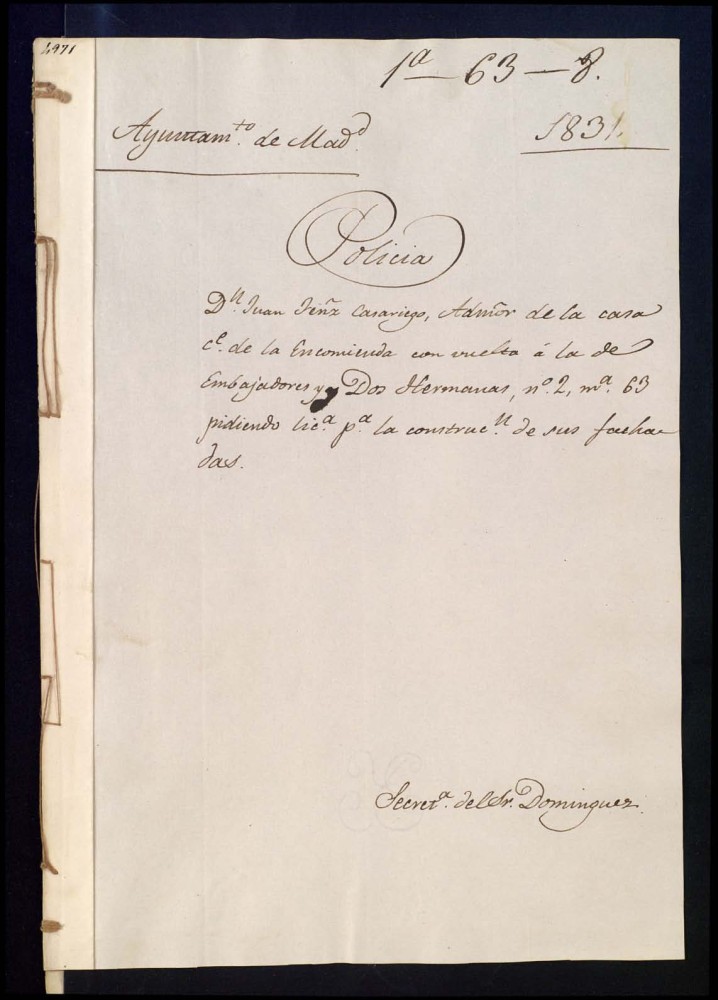 4971
1ª — 63 — 8.
Ayuntam.to de Mad.d
1831.
Policia
D.n Juan Fẽrnz Casariego, Adm̃or de la casa
c.e de la Encomienda con vuelta á la de
Embajadores y Dos Hermanas, n.o 2, m.a 63
pidiendo lic.a p.a la construc.n de sus facha
das.
Secret.a del Sr. Dominguez.